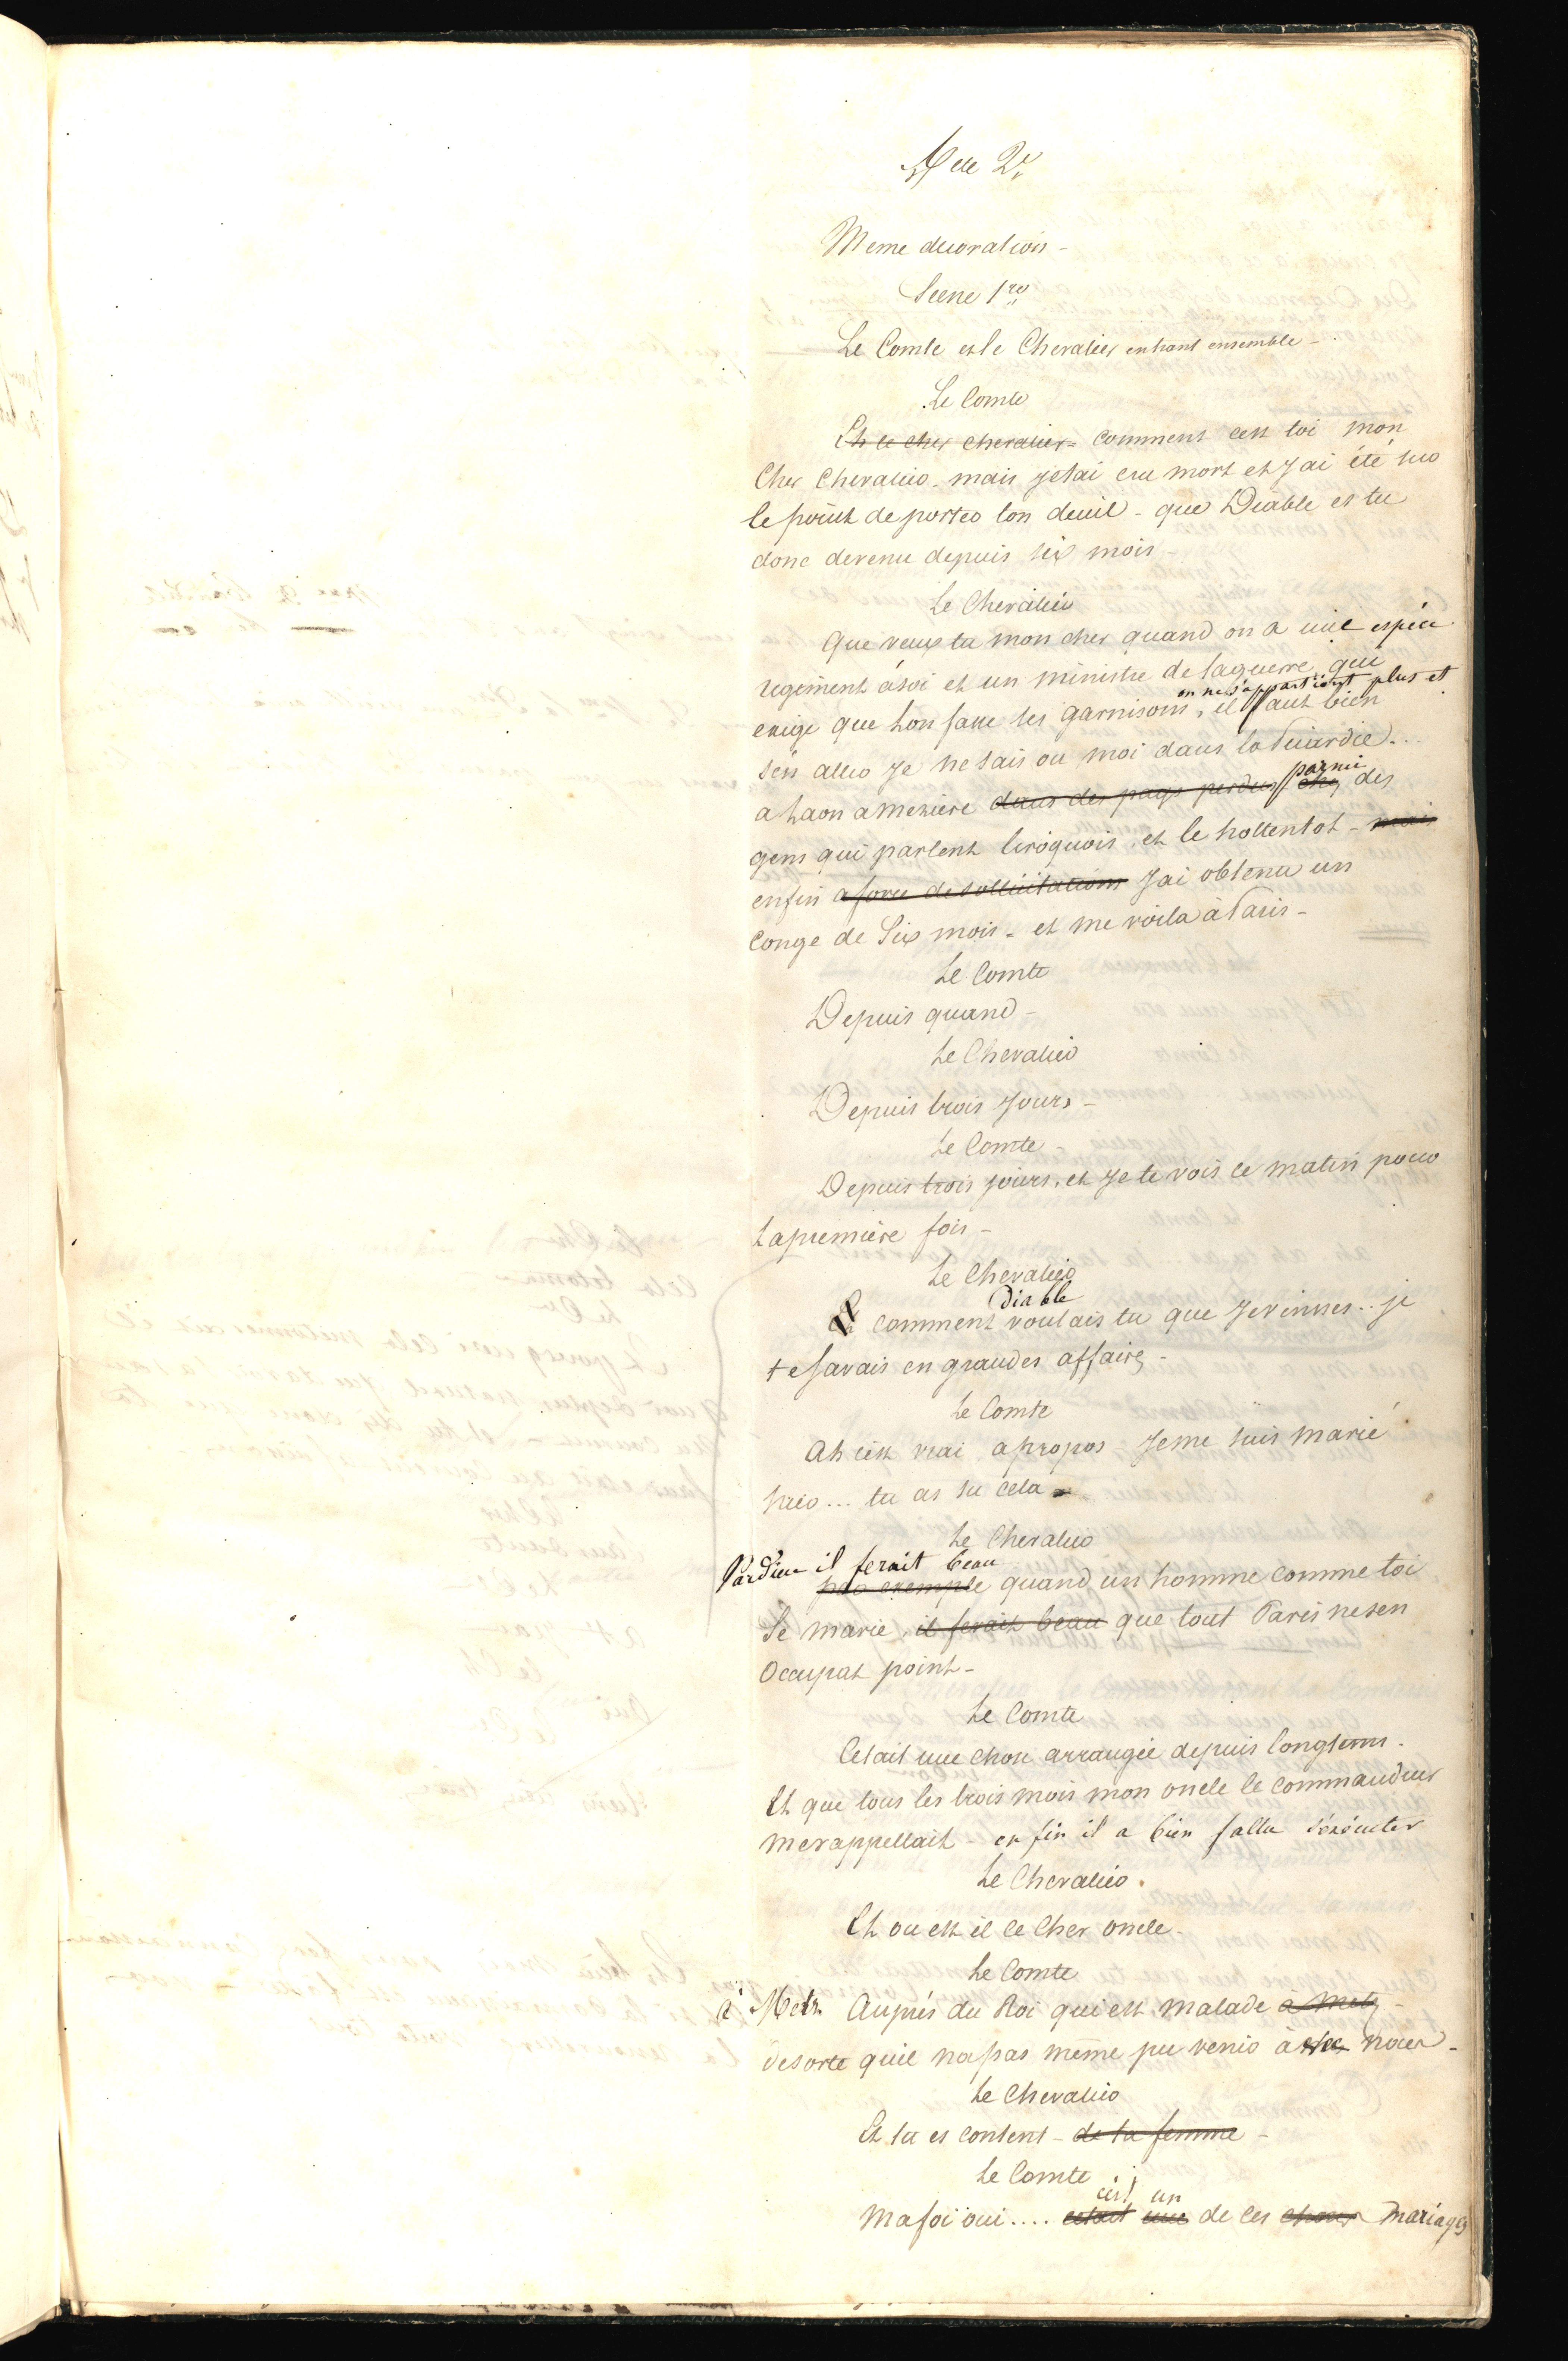 Acte 2e
Meme decoration -
Scene 1re
Le Comte et le Chevalier entrant ensemble -
Le Comte
Eh ce cher chevalier - comment cest toi mon
Cher Chevalier - mais je tai cru mort et J'ai été sur
le point de porter ton deuil - que Diable es tu
donc devenu depuis six mois -
Le Chevalier
Que veux tu mon cher quand on a une espèce
regiment á soi et un ministre de la guerre qui
on ne s'appartient plus et
exige que l'on fasse les garnisons, il faut bien
s'en aller Je ne sais ou moi dans la Picardie...
parmi
a Laon a Meziere dans des pays perdus chez des
gens qui parlent liroquois, et le hottentot - mais
enfin a force de sollicitations J'ai obtenu un
conge de Six mois - et me voila à Paris -
Le Comte
Depuis quand -
Le Chevalier
Depuis trois Jours -
Le Comte -
Depuis trois jours, et Je te vois ce matin pour
la premiere fois -
Le Chevalier
Diable
Eh comment voulais tu que Je vinsses .. je
te savais en grandes affaires -
Le Comte
Ah cest vrai apropos - Je me suis marié
hier ... tu as su cela -
Le Chevalier
Pardieu il ferait beau
par exemple quand un homme comme toi
Se marie, il ferait beau que tout Paris ne sen
Occupat point -
Le Comte
Cetait une chose arrangée depuis longtems -
Et que tous les trois mois mon oncle le commandeur
me rappellait - enfin il a bien fallu s'exécuter
Le Chevalier .
Et ou est il ce Cher oncle -
Le Comte
à Metz Auprés du Roi qui est malade à Metz -
desorte quil na pas même pu venir à nôces -
Le Chevalier
Et tu es content - de ta femme -
Le Comte
c'est un
Ma foi oui .... cetait une de ces choses mariages